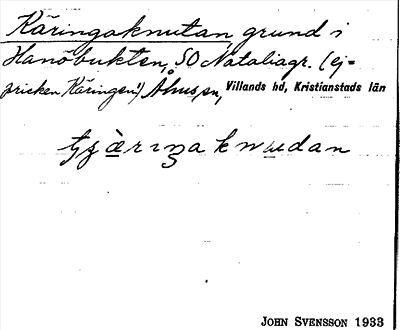 Käringaknutan, grund i
Hanöbukten, SO Nataliagr. (ej=
pricken Käringen!) Åhus, sn, Villands hd, Kristianstads län
JOHN SVENSSON 1933